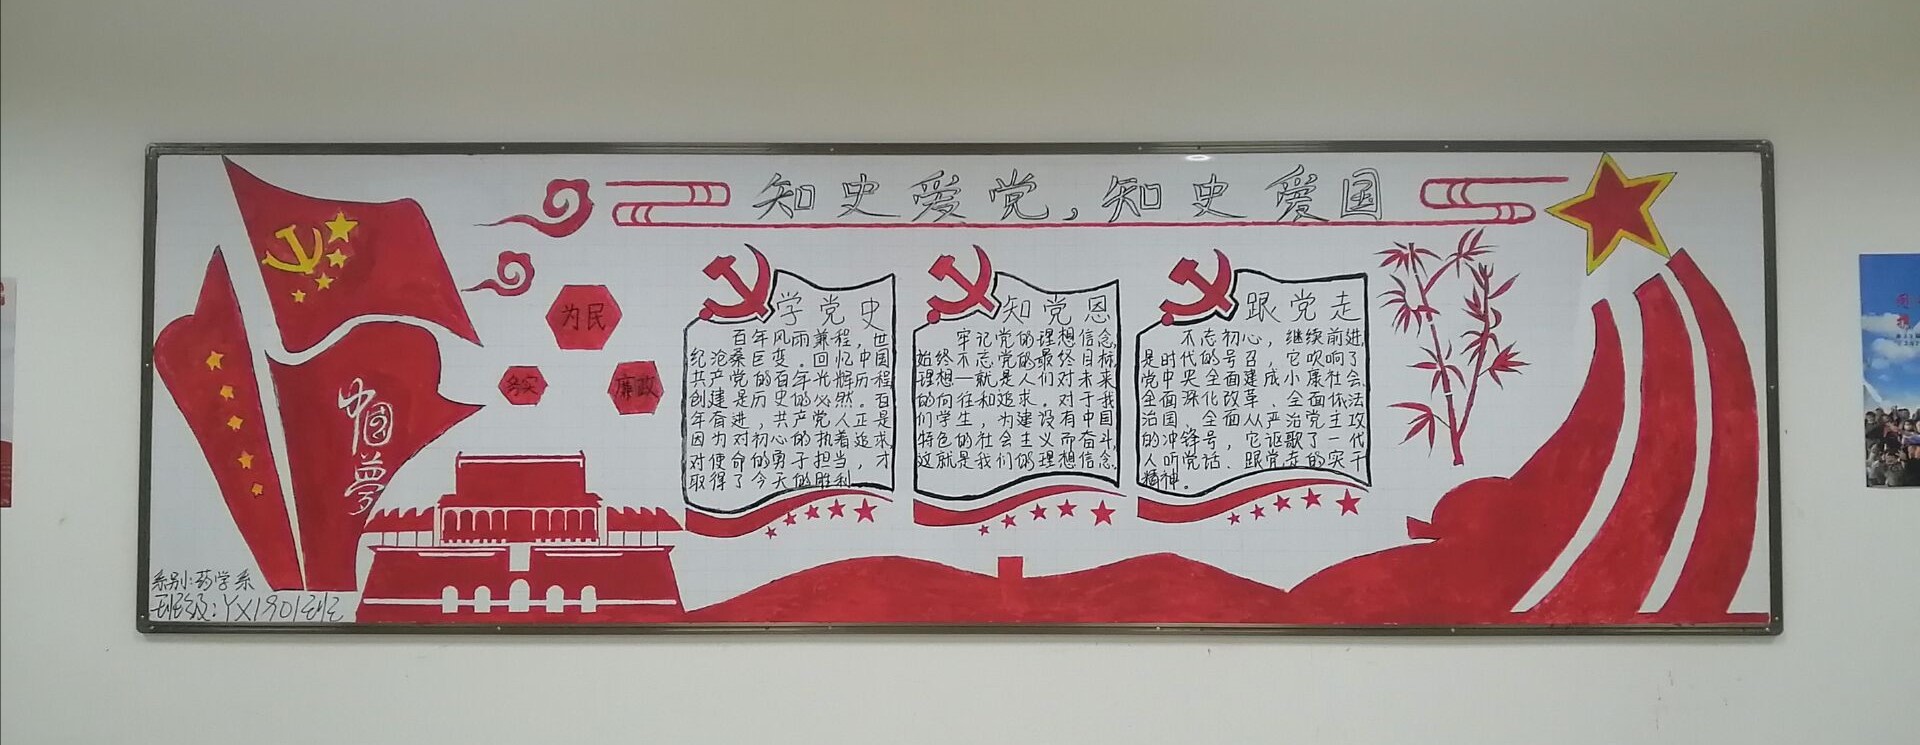 知史爱党，知史爱国
为民
务实
廉政
中国梦
学党史
百年风雨兼程，世
纪沧桑巨变。回忆中国
共产党的百年光辉历程
创建是历史的必然。百
年奋进，共产党人正是
因为对初心的执着追求
对使命的勇于担当，才
取得了今天的胜利
知党恩
牢记党的理想信念，
始终不忘党的最终目标，
理想一就是人们对未来
的向往和追求。对于我
们学生，为建设有中国
特色的社会主义而奋斗，
这就是我们的理想信念。
跟党走
不忘初心，继续前进，
是时代的号召，它吹响了
党中央全面建成小康社会、
全面深化改革、全面依法
治国、全面从严治党主攻
的冲锋号，它讴歌了一代
人听党话、跟党走的实干
精神。
系别：药学系
班级：YX1901班